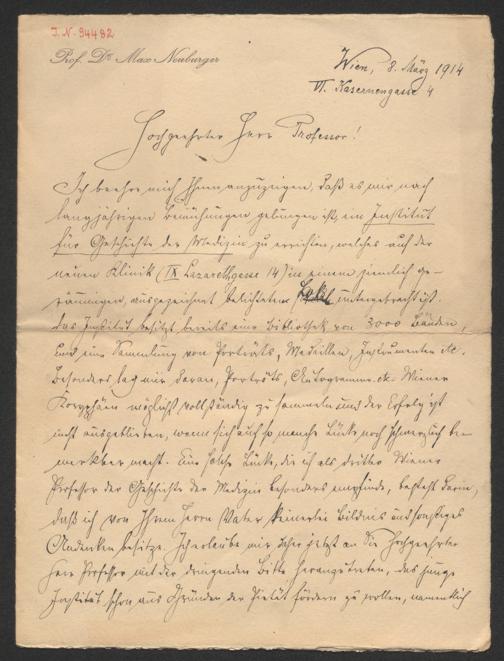 J.N. 94482
Prof. Dr. Max Neuburger
Wien, 8. März 1914
VI. Kasernengasse 4
Hochgeehrter Herr Professor!
Ich beehre mich Ihnen anzuzeigen, daß es mir nach
langjährigen Bemühungen gelungen ist, ein Institut
für Geschichte der Medizin zu errichten, welches auf der
neuen Klinik (IX Lazarethgasse 14) in einem ziemlich ge-
räumigen, ausgezeichnet belichteten Lokal untergebracht ist.
Das Institut besitzt bereits eine Bibliothek von 3000 Bänden,
und eine Sammlung von Porträts, Medaillen, Instrumenten etc.
Besonders lag mir daran, Porträts, Autogramme etc. Wiener
Koryphäen möglichst vollständig zu sammeln und der Erfolg ist
nicht ausgeblieben, wenn sich auch so manche Lücke noch schmerzlich be-
merkbar macht. Eine solche Lücke, die ich als dritter Wiener
Professor der Geschichte der Medizin besonders empfinde, besteht darin,
daß ich von Ihrem Herrn Vater keinerlei Bildnis und sonstiges
Andenken besitze. Ich erlaube mir daher jetzt an Sie Hochgeehrter
Herr Professor mit der dringenden Bitte heranzutreten, das junge
Institut schon aus Gründen der Pietät fördern zu wollen, namentlich